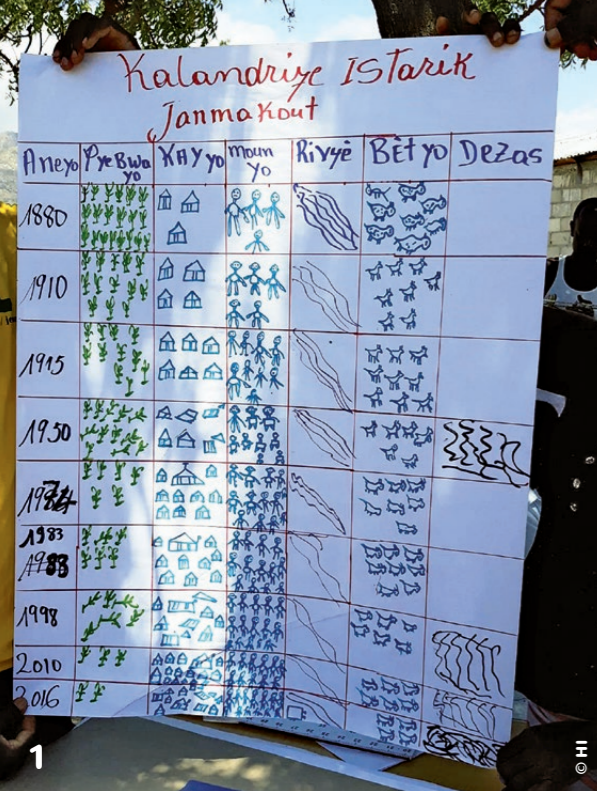 Kalandriye IStarik
Janmakout
Aneyo PyeBwa yo KAY yo Moun yo Rivyè BÈt yo Dezas
1880
1910
1915
1950
1983
1988
1998
2010
2016
1
© HI